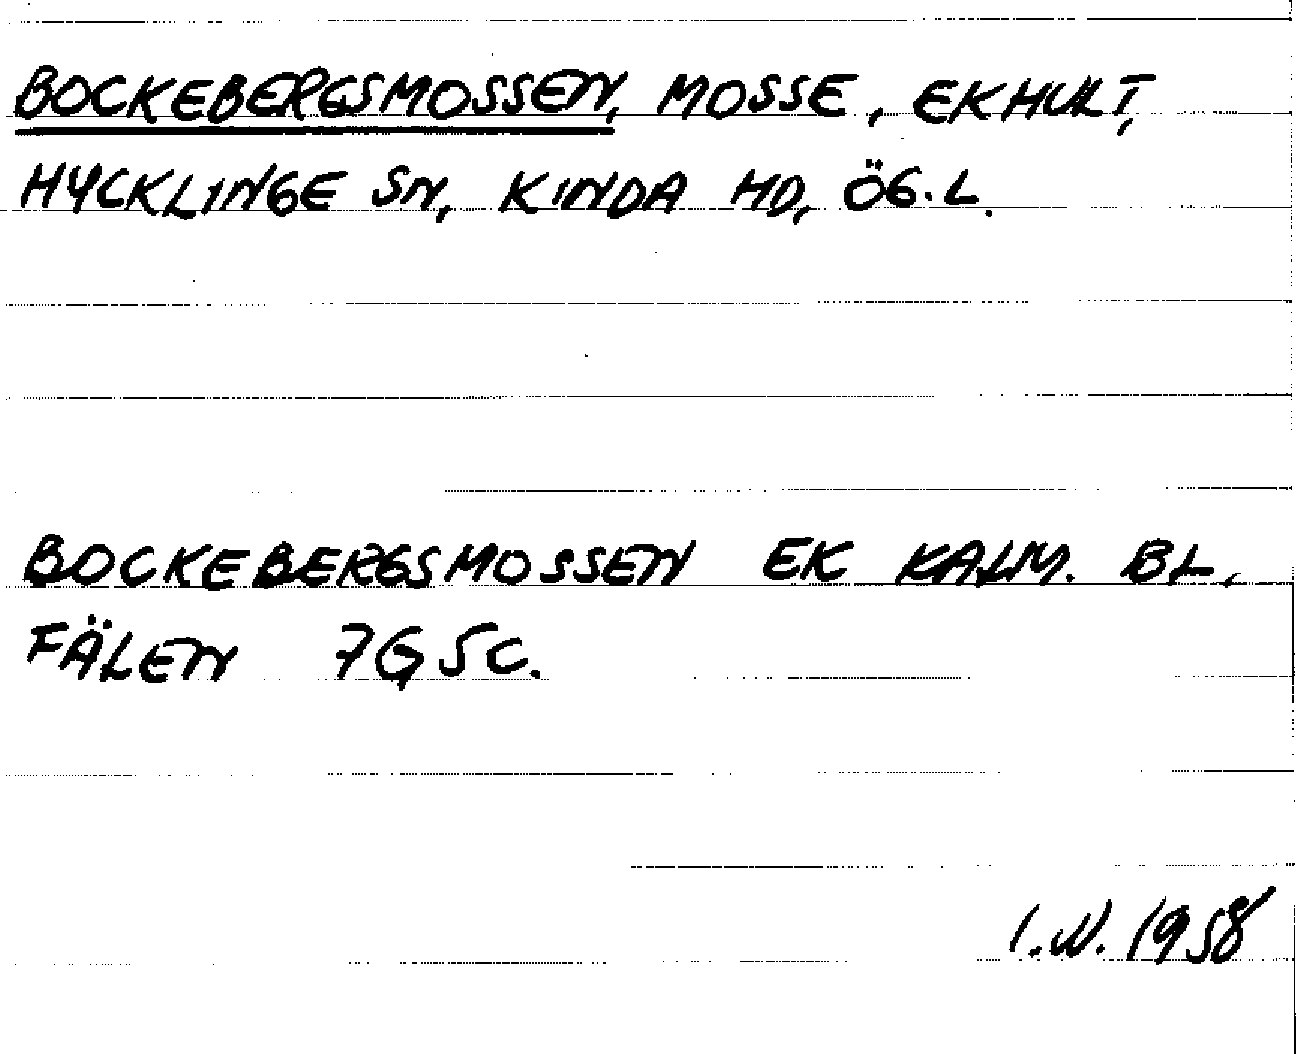 BOCKEBERGSMOSSEN, MOSSE, EKHULT,
HYCKLINGE SN, KINDA HD, ÖG.L.
BOCKEBERGSMOSSEN EK KALM. BL,
FÄLEN 7G5C.
I.W. 1958